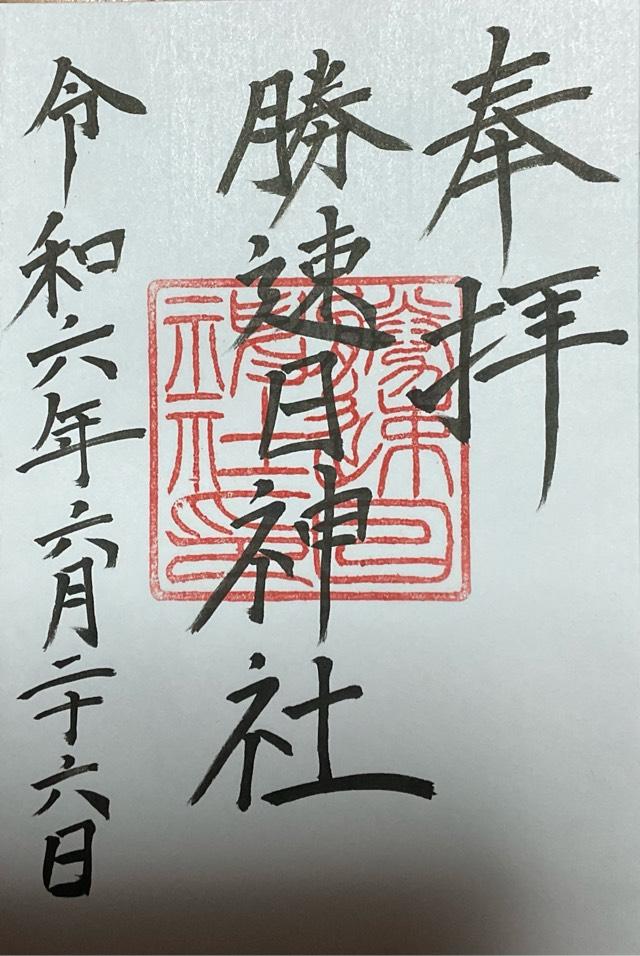 奉拝
勝速日神社
令和六年六月二十六日